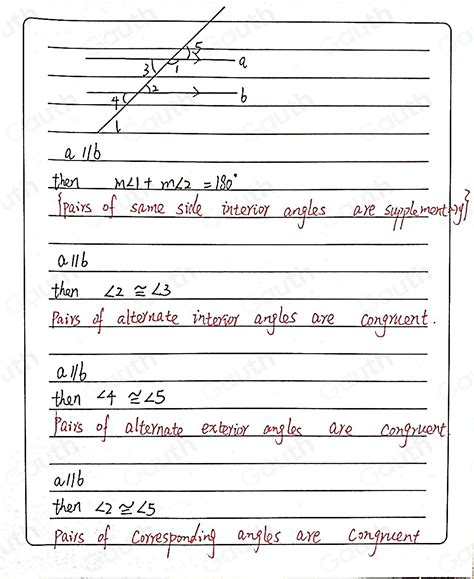 5
3 1 a
2
4 b
l
a//b
then m∠1 + m∠2 = 180°
{pairs of same side interior angles are supplementary}
a//b
then ∠2 ≅ ∠3
Pairs of alternate interior angles are congruent.
a//b
then ∠4 ≅ ∠5
Pairs of alternate exterior angles are congruent
a//b
then ∠2 ≅ ∠5
Pairs of corresponding angles are congruent
Gauth